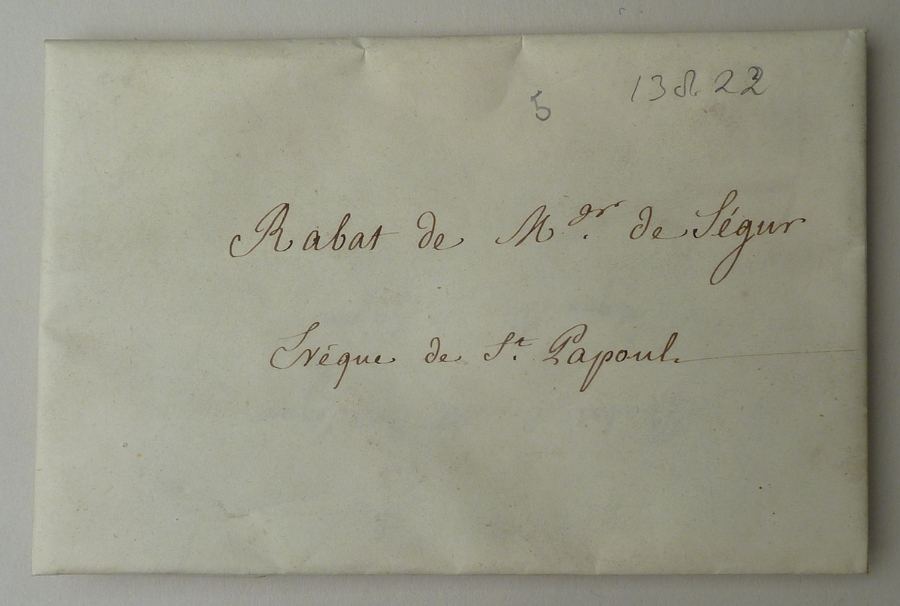 5 13 22
Rabat de Mgr. de Ségur
Evêque de St. Papoul.